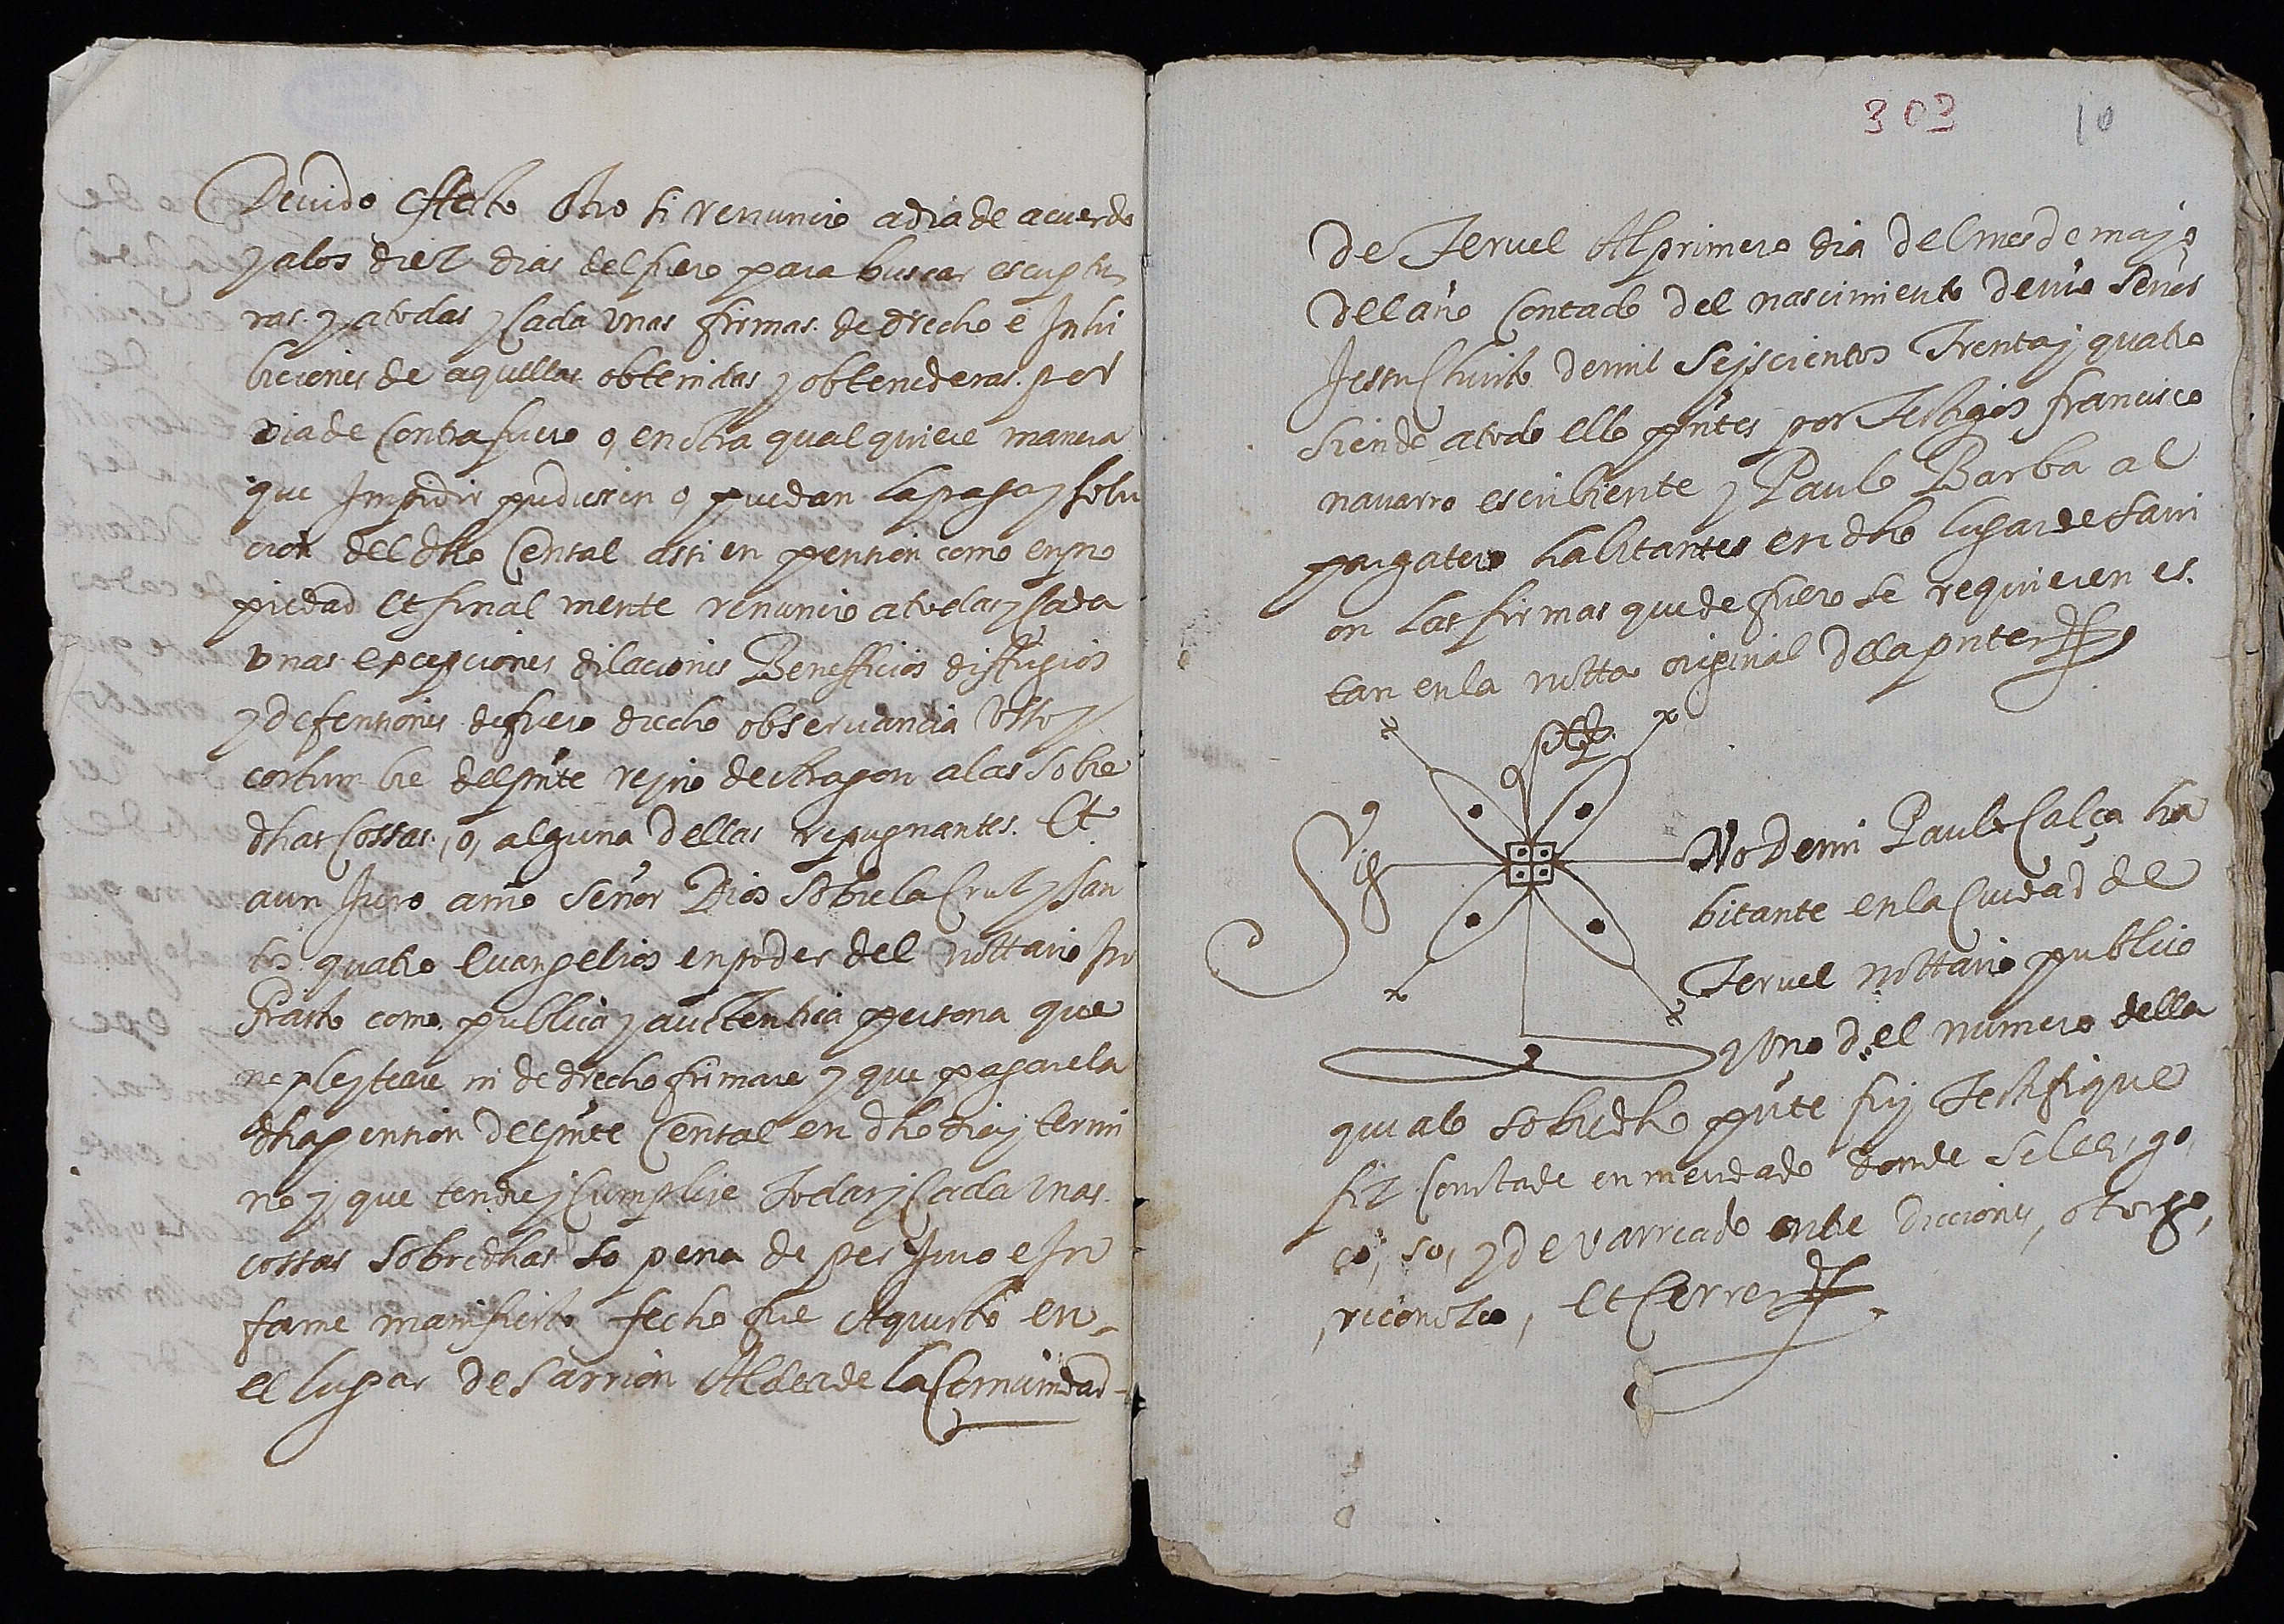 Deuido effecto Otro si renuncio a dia de acuerdo
y a los diez dias del fuero para buscar escriptu
ras. y a todas y Cada Unas firmas. de drecho e Inhi
biciones de aquellas obtenidas y obtenederas. por
via de Contrafuero o, en otra qual quiere manera
que Impidir pudiesen o, puedan la paga y solu
cion del dho Censal assi en pension como en pro
piedad et final mente renuncio a todas y Cada
Unas excepciones dilaciones Beneficios diffugios
y defensiones de fuero drecho observancia Usso y
costum bre del pnte reyno de Aragon a las sobre
dhas Cossas, o, alguna dellas repugnantes. Et
aun Juro a nro Señor Dios Sobre la Cruz y San
tos quatro Euangelios en poder del nottario Infra
scripto como publica y auctentica persona que
no pleyteare ni de drecho firmare y que pagare la
dha pension del pnte Censal en dho dia y termi
no y que tendre y Cumplire Todas y Cada Unas.
cossas sobredhas so pena de perjuro e In
fame manifiesto fecho fue Aquesto en
el lugar de Sarrion Aldea de la Comunidad
303 10
de Teruel Al primero dia del mes de mayo
del año Contado del nascimiento de nro señor
Jesu Christo de mil Seyscientos Trenta y quatro
siendo a todo ello pntes por Testigos francisco
nauarro escribiente y Paulo Barba al
pargatero habitantes en dho lugar de Sarri
on las firmas que de fuero se requieren es.
tan en la notta original de la pnte
Sig No De mi Paulo Calça ha
bitante en la Ciudad de
Teruel nottario publico
y Uno del numero della
qui a lo sobredho pnte fuy Testifique
fiz Consta de enmendado donde se lee, go,
co, so, y de varreado entre dicciones, otorgo,
, reconozco, et Cerre